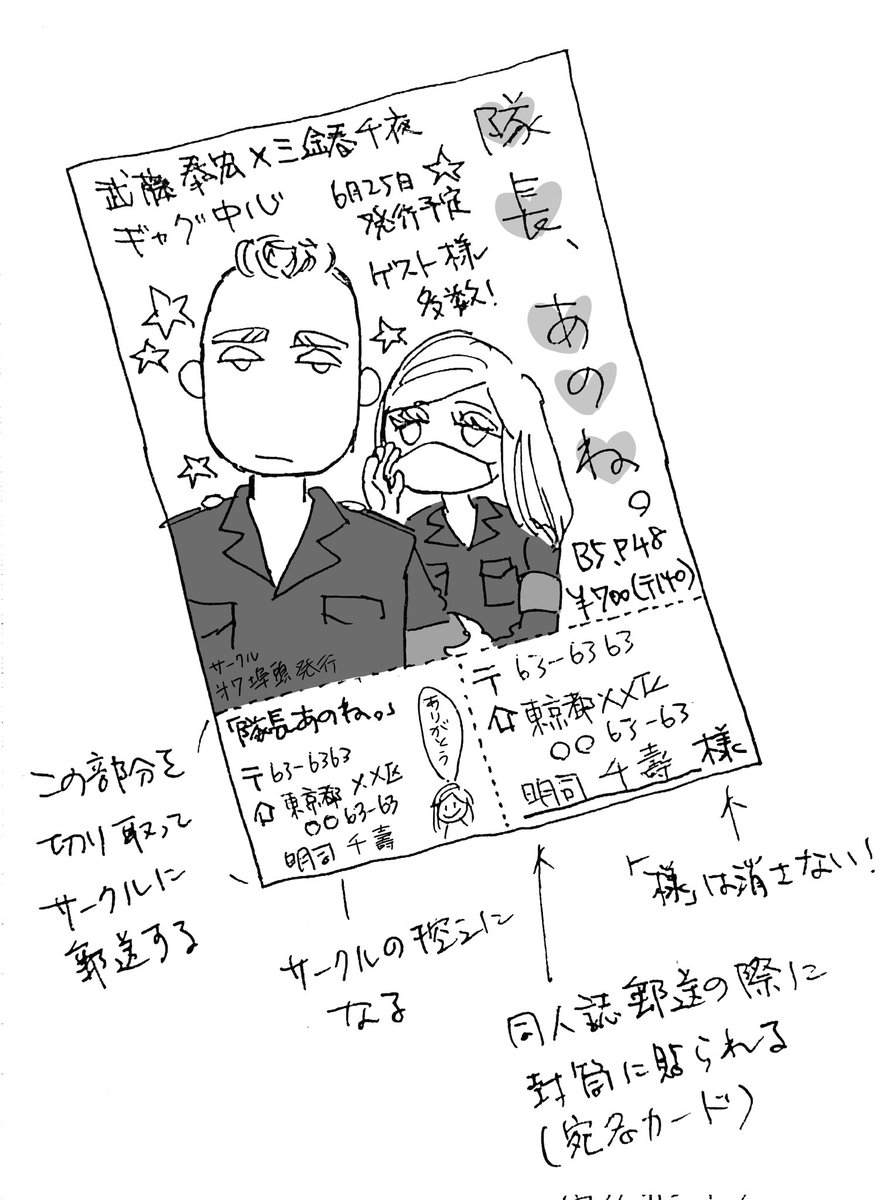 隊長、あのね。
武藤泰宏×三途春千夜
ギャグ中心
6月25日☆
発行予定
ゲスト様
多数!
B5.P48
¥700(〒140)
サークル
オワ埠頭発行
「隊長あのね。」
〒63-6363
東京都××区
○○63-63
明司千壽
ありがとう
〒63-6363
東京都××区
○○63-63
明司 千壽 様
この部分を
切り取って
サークルに
郵送する
サークルの控えに
なる
同人誌郵送の際に
封筒に貼られる
(宛名カード)
「様」は消さない!